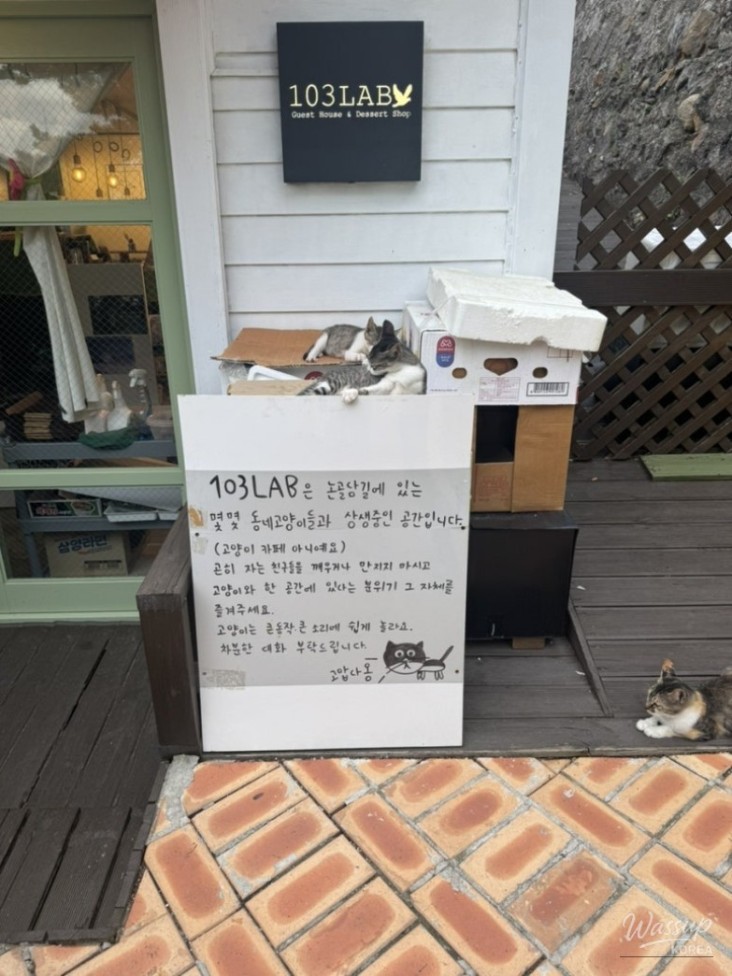 103LAB
Guest House & Dessert Shop
103LAB은 논골담길에 있는
몇몇 동네고양이들과 상생중인 공간입니다.
(고양이 카페 아니예요)
곤히 자는 친구들을 깨우거나 만지지 마시고
고양이와 한 공간에 있다는 분위기 그 자체를
즐겨주세요.
고양이는 큰동작.큰 소리에 쉽게 놀라요.
차분한 대화 부탁드립니다.
고맙다옹
삼양라면
Wassup
KOREA